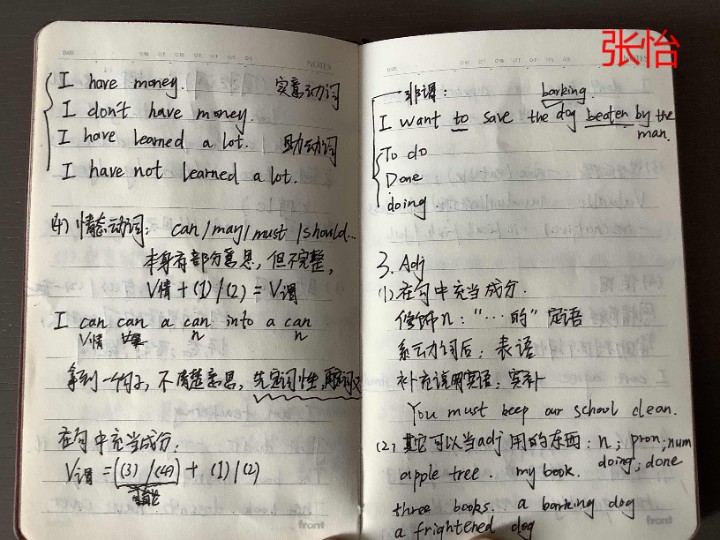 张怡
NOTES
I have money. 实意动词
I don't have money.
I have learned a lot. 助动词
I have not learned a lot.
(4) 情态动词: can/may/must/should...
本身有部分意思,但不完整,
V情+(1)/(2)=V谓
I can can a can into a can
V情 V实 n n
拿到一个句子,不清楚意思,先定词性,再定词义
在句中充当成分:
V谓=[(3)/(4)]+(1)/(2)
front
NOTES
非谓: barking.
I want to save the dog beaten by the
man.
To do
Done
doing.
3. Adj
(1) 在句中充当成分.
修饰n: "…的" 定语
系动词后: 表语
补充说明宾语: 宾补
You must keep our school clean.
(2) 其它可以当adj用的东西: n; pron; num
doing; done
apple tree. my book.
three books. a barking dog
a frightened dog
front